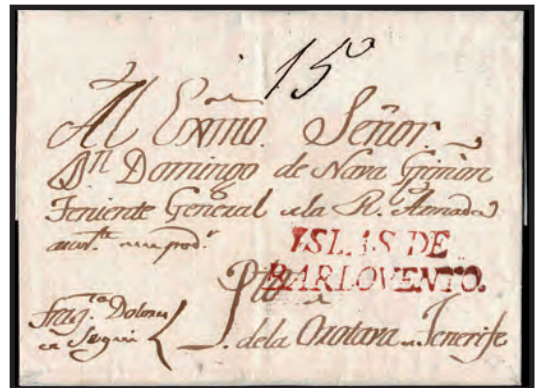 15º
Al Exmo. Señor
Dn Domingo de Nava Grimon
Teniente General de la Rl. Armada
ISLAS DE
BARLOVENTO.
Pto
Fragta. Dolores
de la Orotava en Tenerife